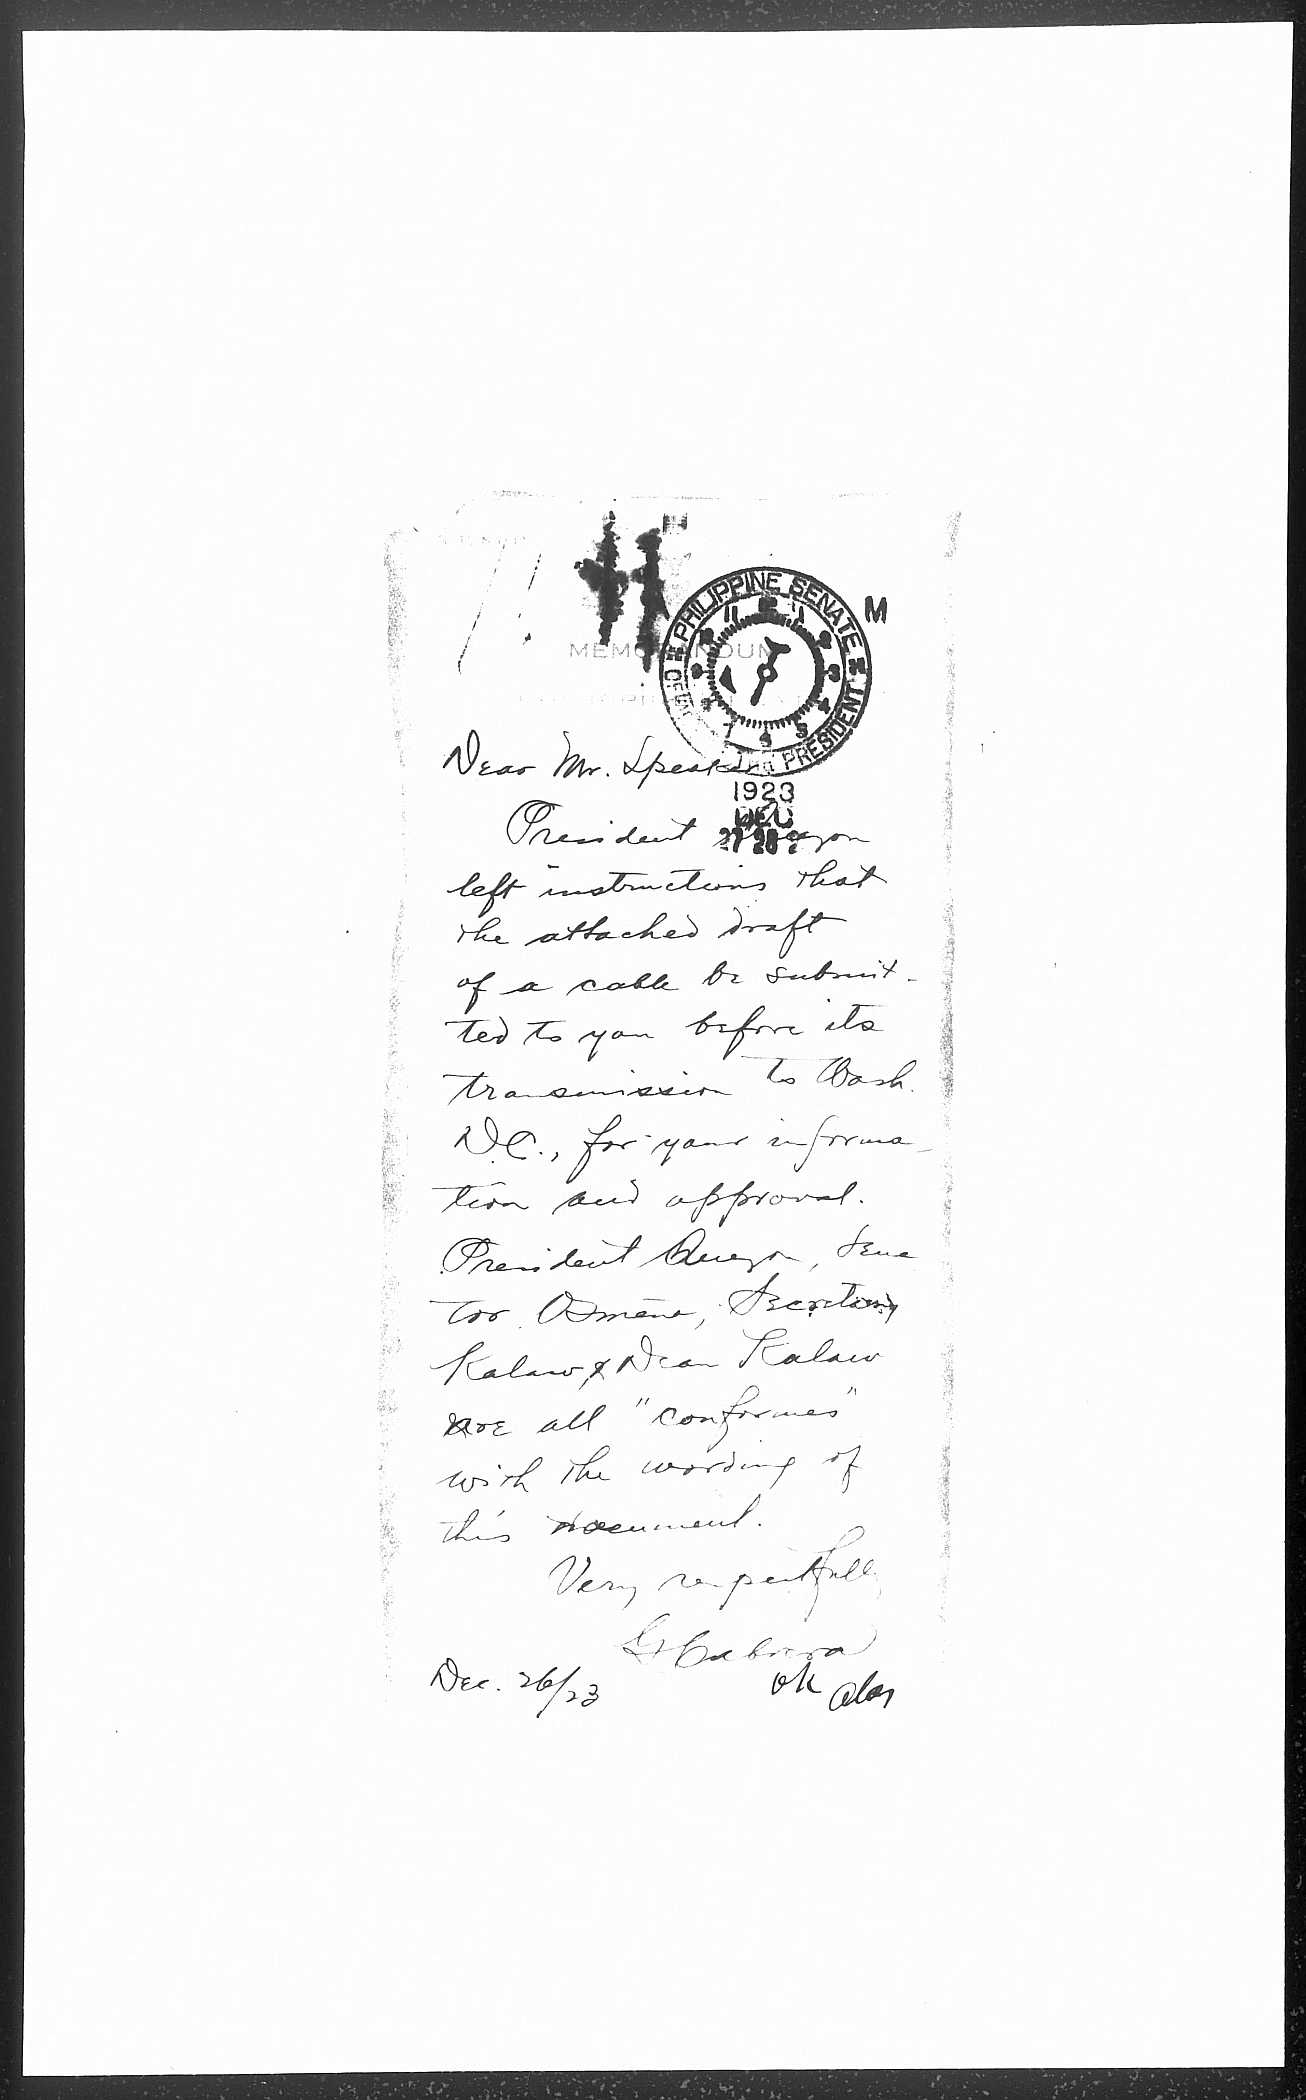 MEMORANDUM
PHILIPPINE SENATE
OFFICE OF THE PRESIDENT
M
1923
DEC
Dear Mr. Speaker
President Quezon
left instructions that
the attached draft
of a cable be submit-
ted to you before its
transmission to Wash.
D.C., for your informa-
tion and approval.
President Quezon, Sena
tor Osmena, Secretary
Kalaw & Dean Kalaw
are all "conformes"
with the wording of
this document.
Very respectfully
Cabrera
Dec. 26/23
ok